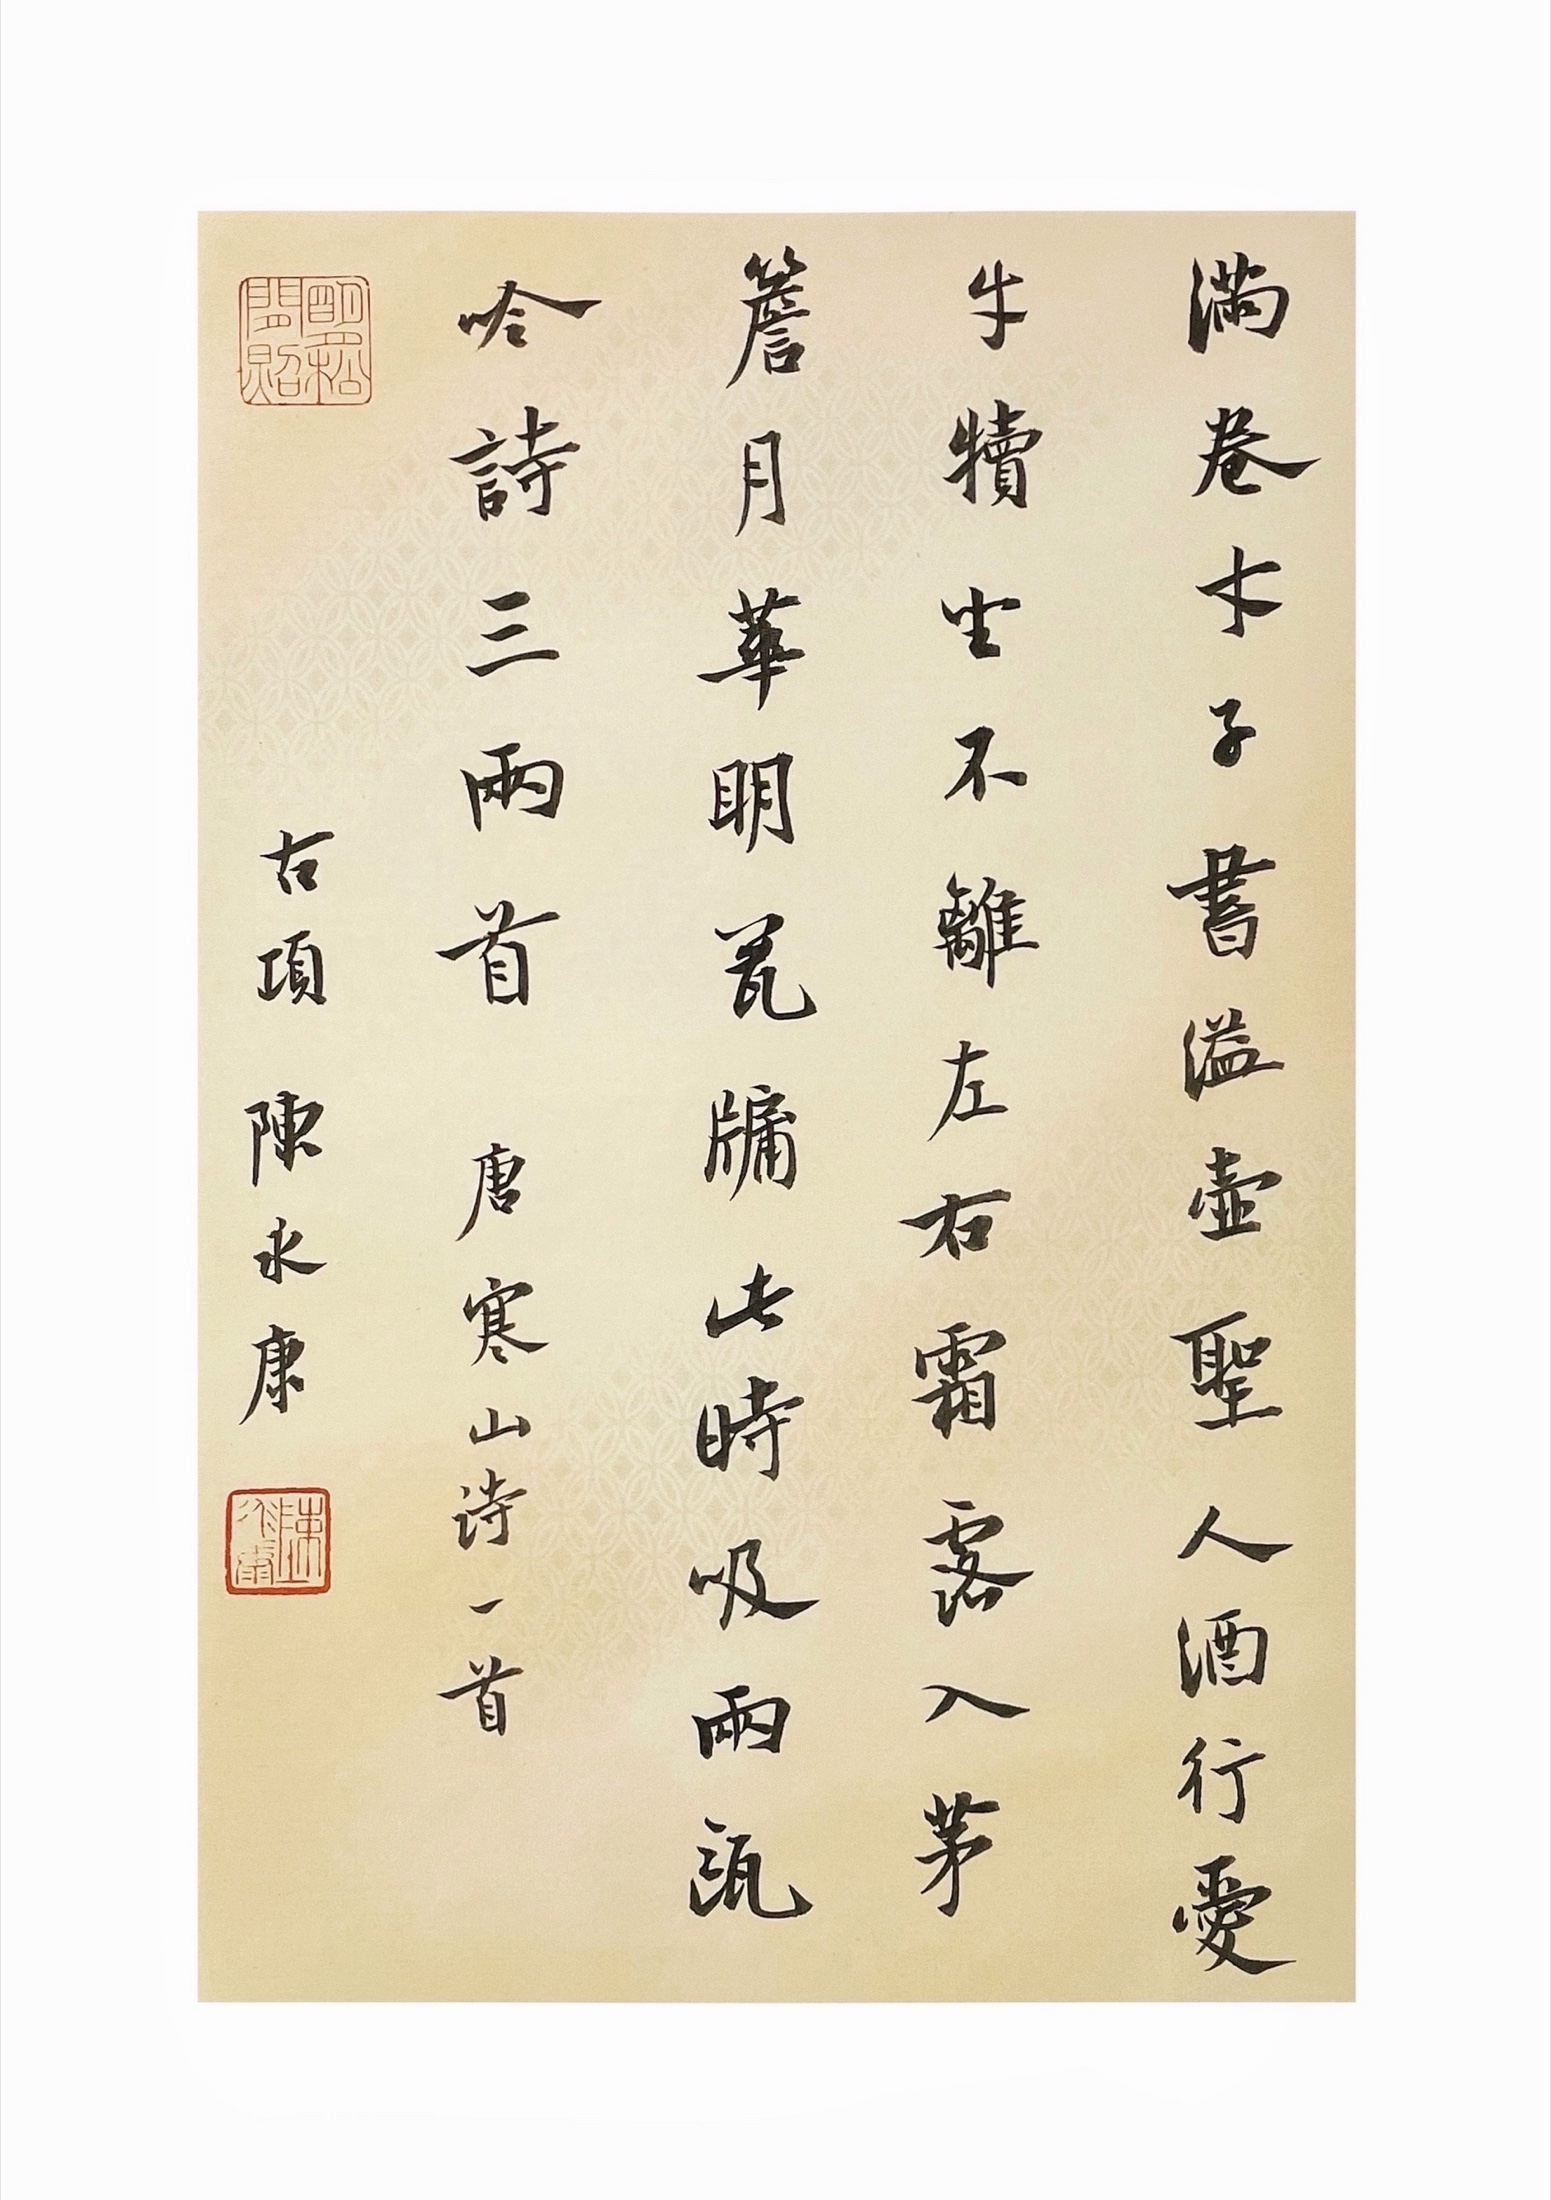 滿卷才子書溢壺聖人酒行愛
牛犢坐不離左右霜露入茅
簷月華明瓮牖此時吸兩甌
吟詩三兩首 唐寒山诗一首
古項 陳永康
陳永康